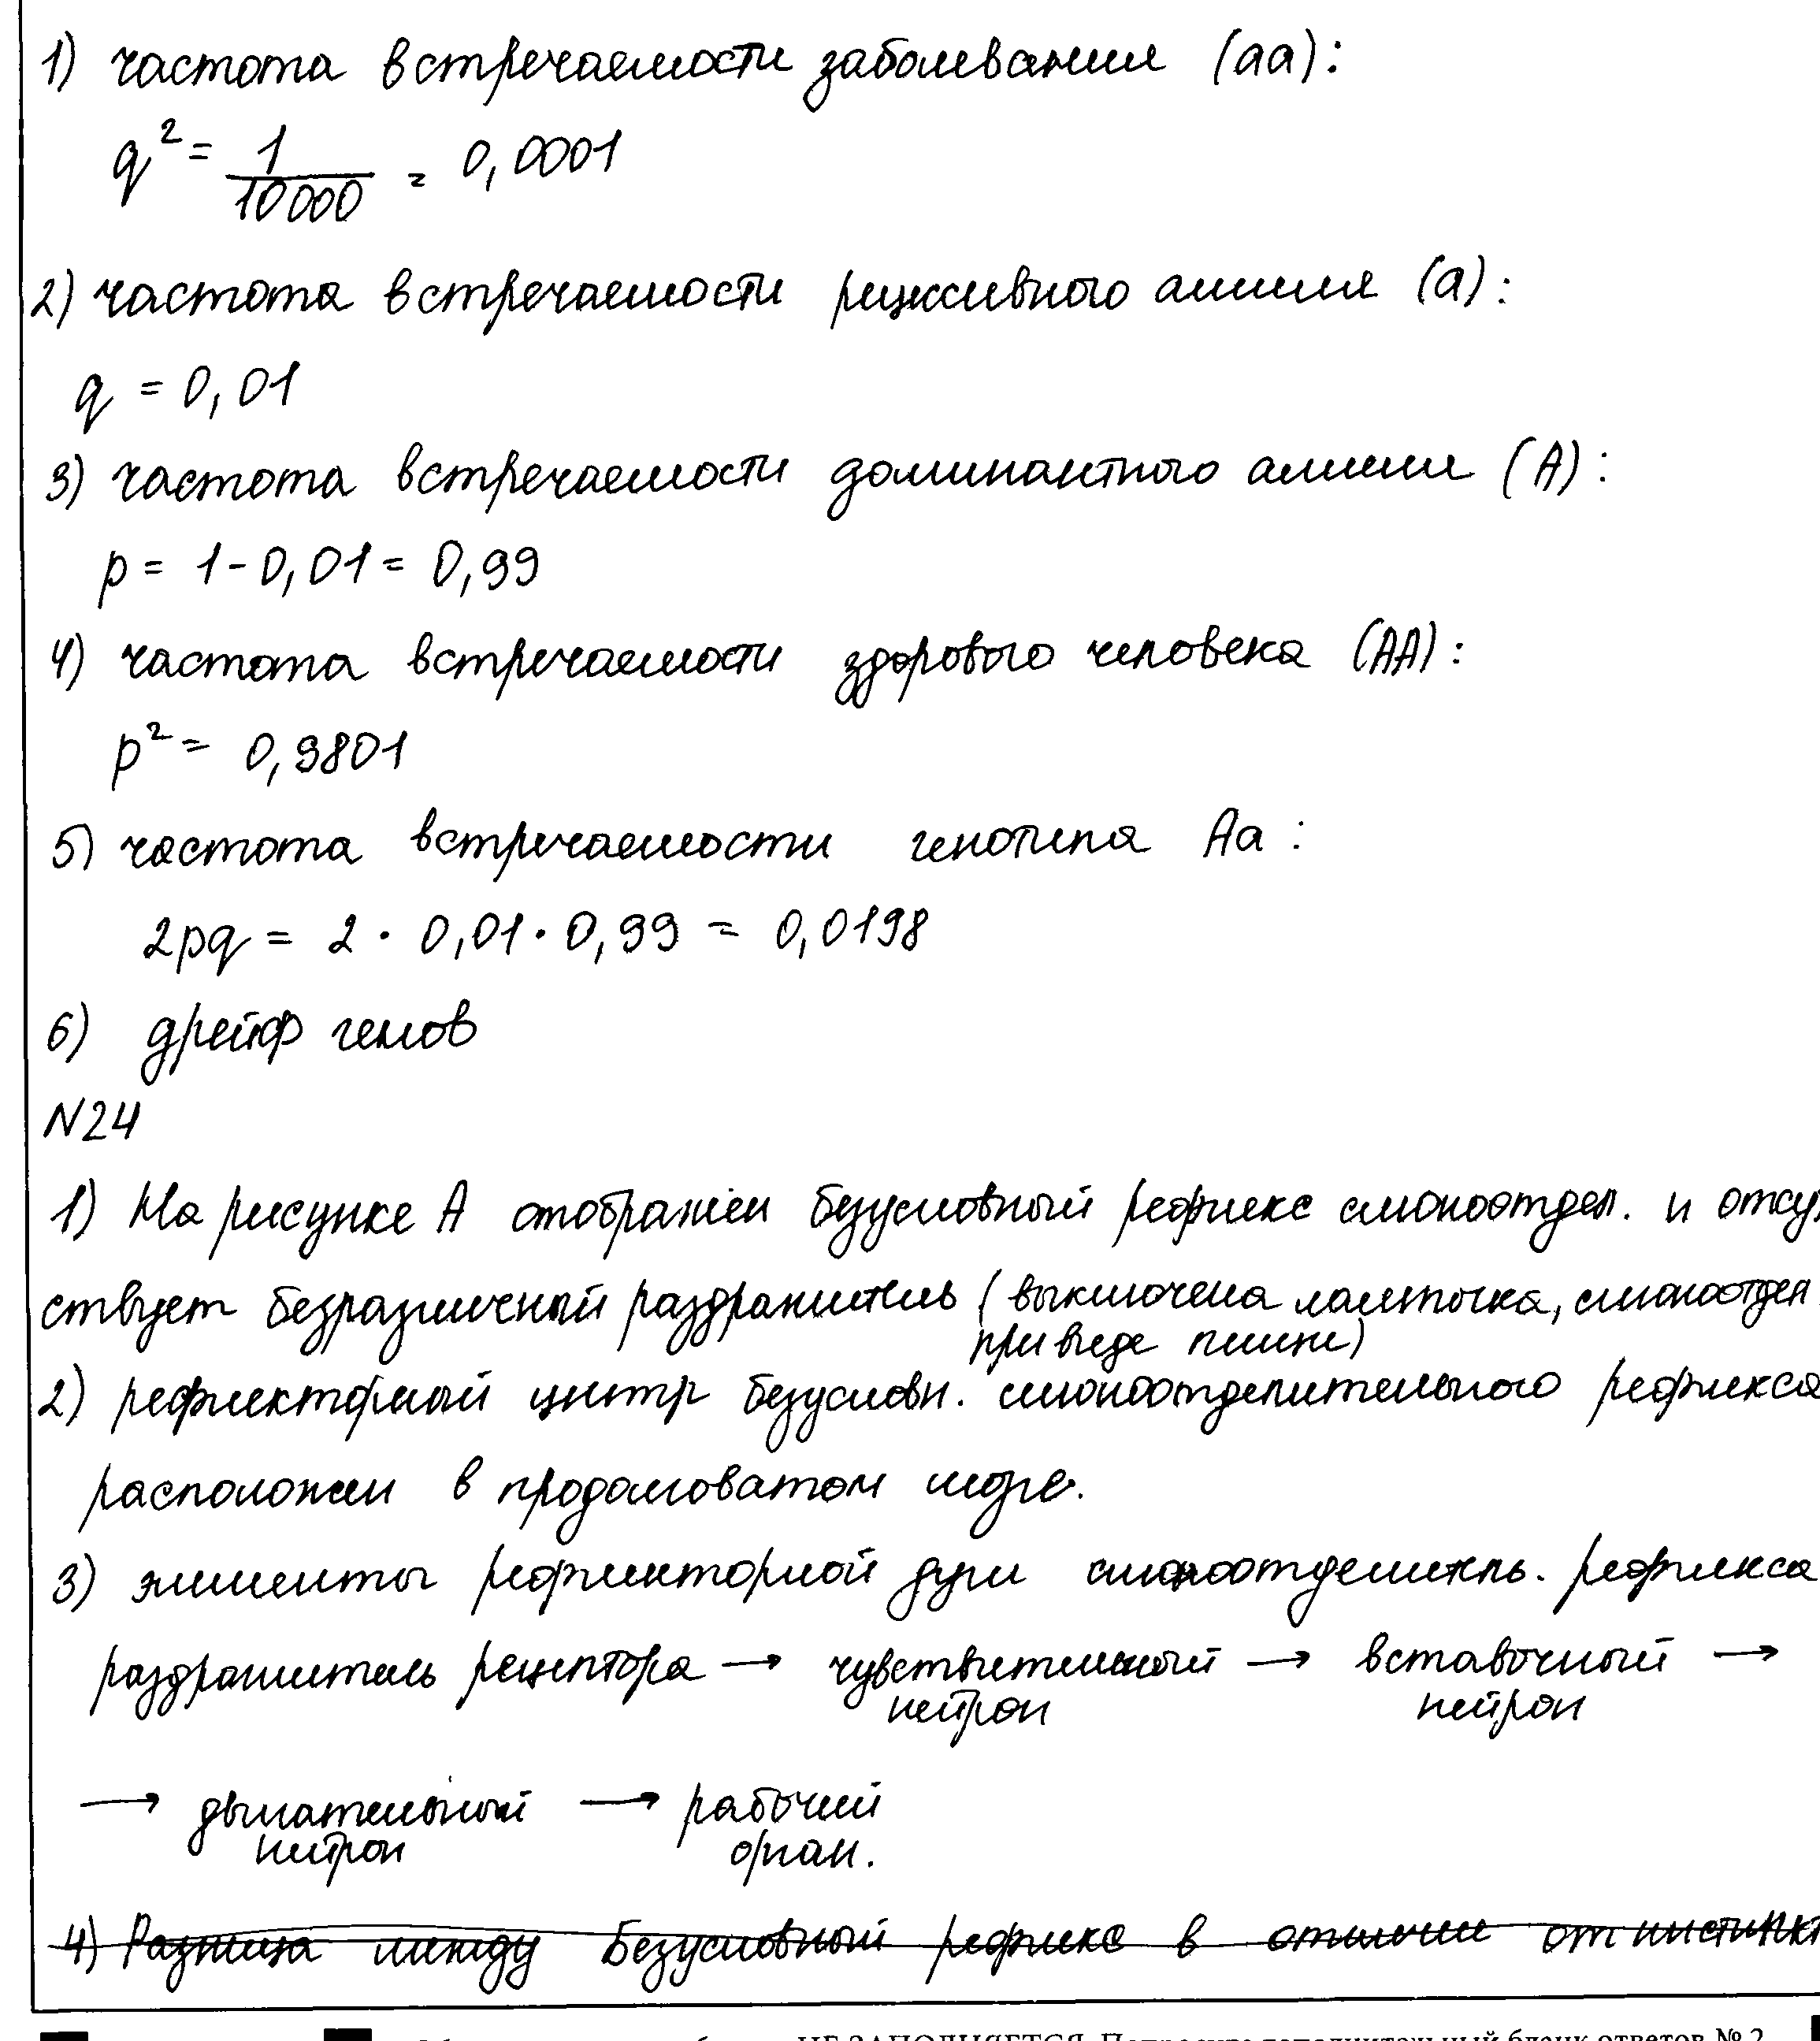 1) частота встречаемости заболевания (аа):
q² = 1/10000 = 0,0001
2) частота встречаемости рецессивного аллеля (а):
q = 0,01
3) частота встречаемости доминантного аллели (А):
p = 1 - 0,01 = 0,99
4) частота встречаемости здорового человека (АА):
p² = 0,9801
5) частота встречаемости генотипа Аа :
2pq = 2 · 0,01 · 0,99 = 0,0198
6) дрейф генов
N24
1) На рисунке А отображен безусловный рефлекс слюноотдел. и отсут
ствует безразличный раздражитель (выключена лампочка, слюноотдел.
при виде пищи)
2) рефлекторный центр безусловн. слюноотделительного рефлекса
расположен в продолговатом мозге.
3) элементы рефлекторной дуги слюноотделитель. рефлекса
раздражитель рецептора → чувствительный → вставочный →
нейрон нейрон
→ двигательный → рабочий
нейрон орган.
4) Разница между Безусловный рефлекс в отличии от инстинкт
НЕ ЗАПОЛНЯЕТСЯ. Попросите дополнительный бланк ответов № 2